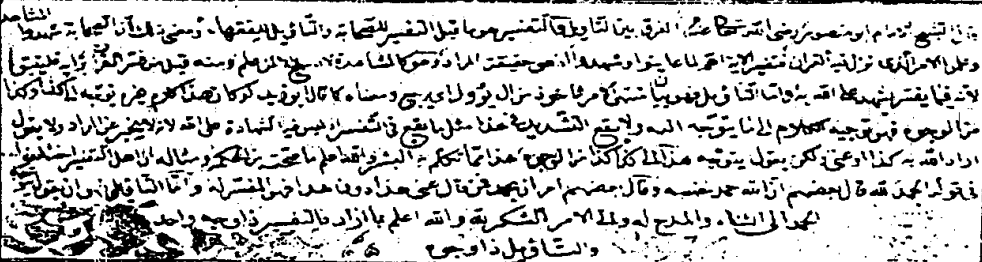 المشاهد
قال الشيخ الامام ابو منصور رضى الله تعالى عنه الفرق بين التاويل والتفسير هو ما قيل التفسير للصحابة والتاويل للفقهاء ومعنى ذلك ان الصحابة شهدوا
وعلموا الامر الذى نزل فيه القران فتفسير الاية اهم لما عاينوا وشهدوا اذ هو حقيقة المراد وهو كالمشاهدة لا يسع الا لمن علم ومنه قيل من فسر القران برايه فليتبوأ
لانه فيما يفسر يشهد على الله به واما التاويل فهو بيان منتهى الامر ماخوذ من ال يؤول اى يرجع ومعناه كما قال ابو زيد لو كان هذا كلام غيره توجه الى كذا وكذا
من الوجوه فهو توجيه الكلام الى ما يتوجه اليه ولا يقع التشديد فى هذا مثل ما يقع فى التفسير اذ ليس فيه الشهادة على الله لانه لا يخبر عن المراد ولا يقول
اراد الله به كذا او عنى ولكن يقول يتوجه هذا الى كذا وكذا من الوجوه هذا مما تكلم به البشر والله اعلم ما صحته من الحكمة ومثاله ان اهل التفسير اختلفوا
فى قوله الحمد لله قال بعضهم ان الله حمد نفسه وقال بعضهم امر ان يحمد فمن قال عنى هذا دون هذا فهو المفسر له واما التاويل فهو ان يقول يتوجه
الحمد الى الثناء والمدح له والى الامر بالشكر لله والله اعلم بما اراد فالتفسير ذو وجه واحد
والتاويل ذو وجوه